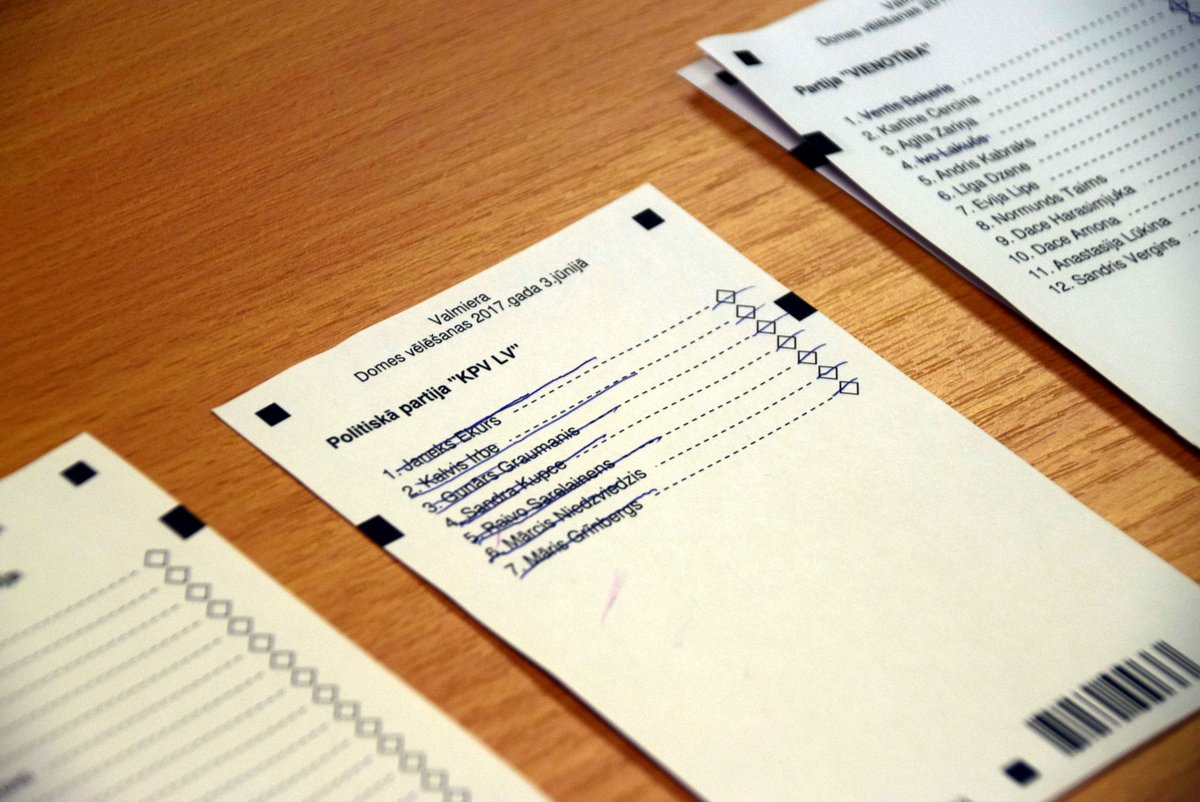 Valmiera
Domes vēlēšanas 2017.gada 3.jūnijā
Politiskā partija "KPV LV"
1. Janeks Ekurs
2. Kalvis Irbe
3. Gunārs Graumanis
4. Sandra Kupce
5. Raivo Sarelainens
6. Mārcis Niedzviedzis
7. Māris Grīnbergs
Domes vēlēšanas
Partija "VIENOTĪBA"
1.
2. Karlīne Cercina
3. Agita Zariņa
4. Ivo
5. Andris Kabraks
6. Līga Dzene
7. Evija Lipe
8. Normunds Taims
9. Dace Harasimjuka
10. Dace Amona
11. Anastasija Lūkina
12. Sandris Vergins